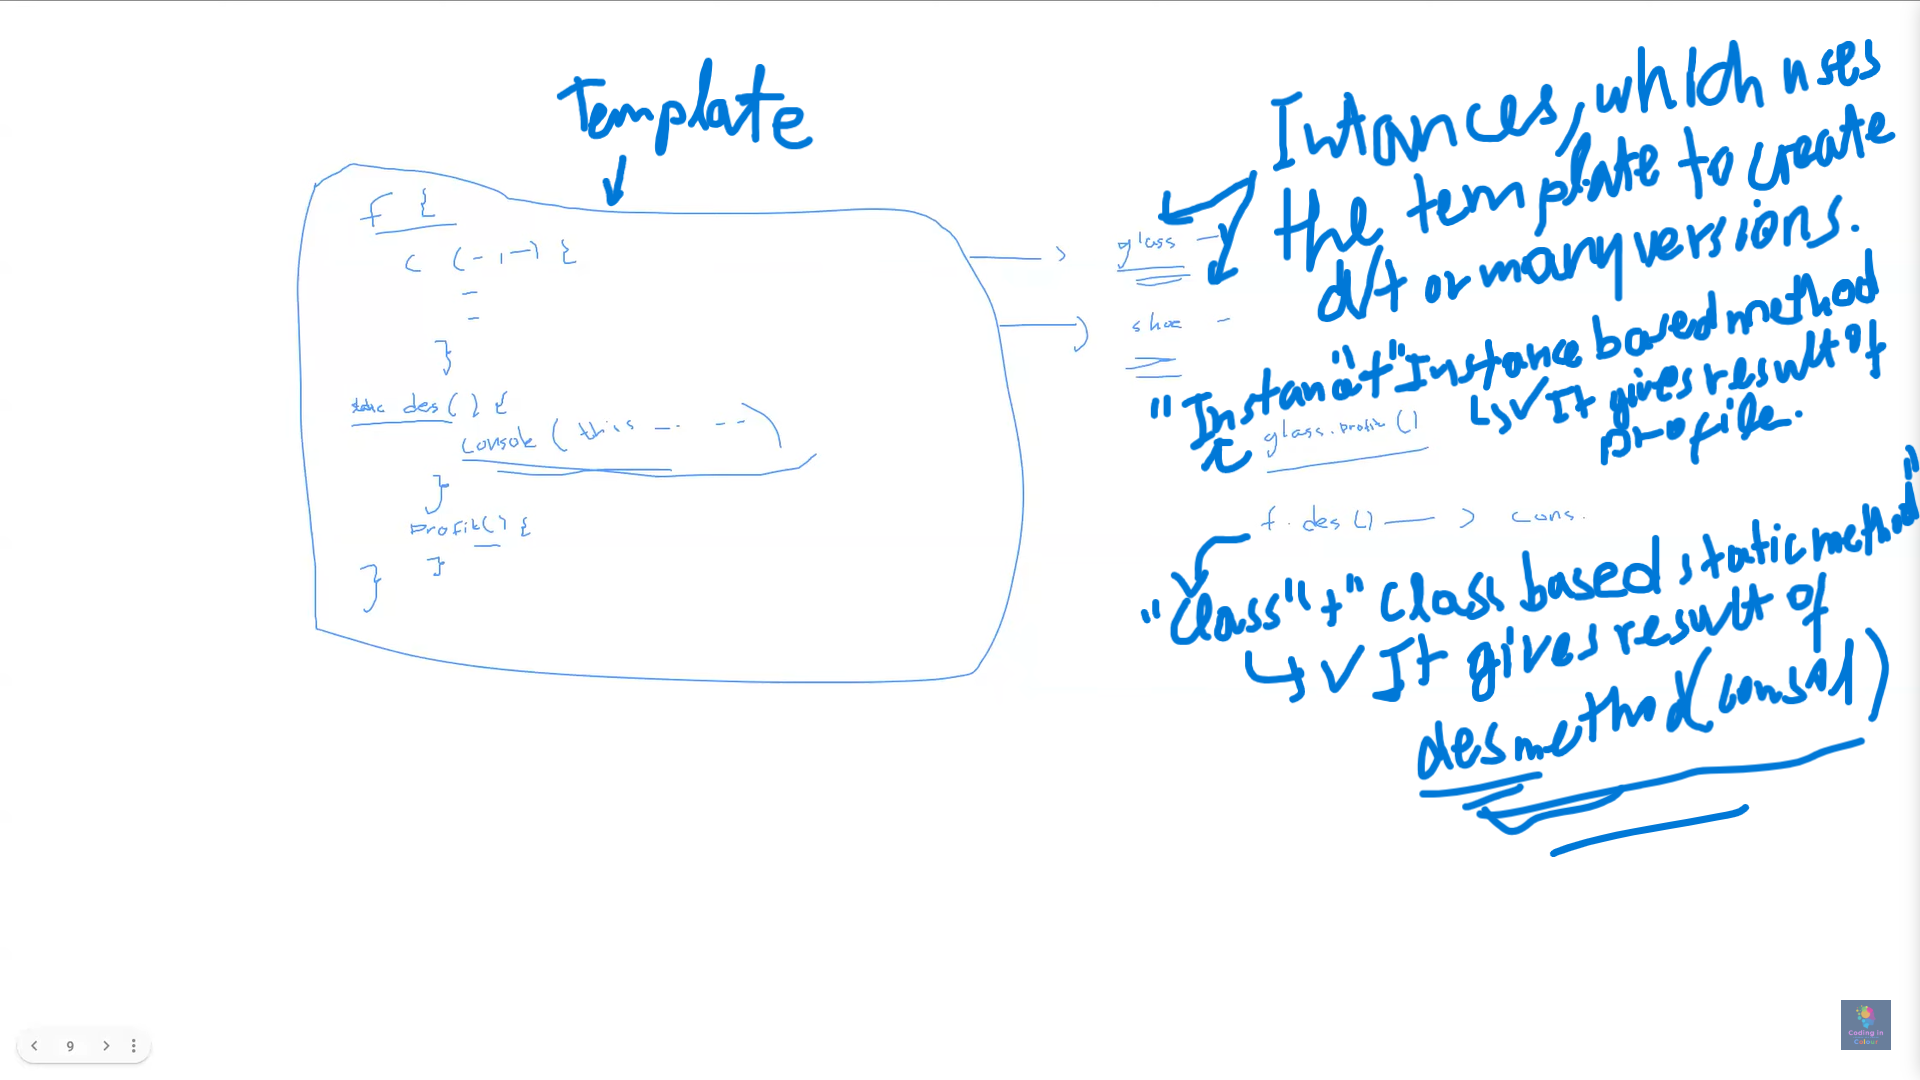 Template
f {
c (-,-) {
}
static des() {
console (this -- --)
}
profit() {
}
}
glass -
shoe -
Intances, which uses
the template to create
d/t or many versions.
"Instance"+"Instance based method
↳✓It gives result of
profile.
glass.profit()
f.des() —> cons.
"Class"+"Class based static method"
↳✓It gives result of
des method(consol)
9
Coding in
Colour